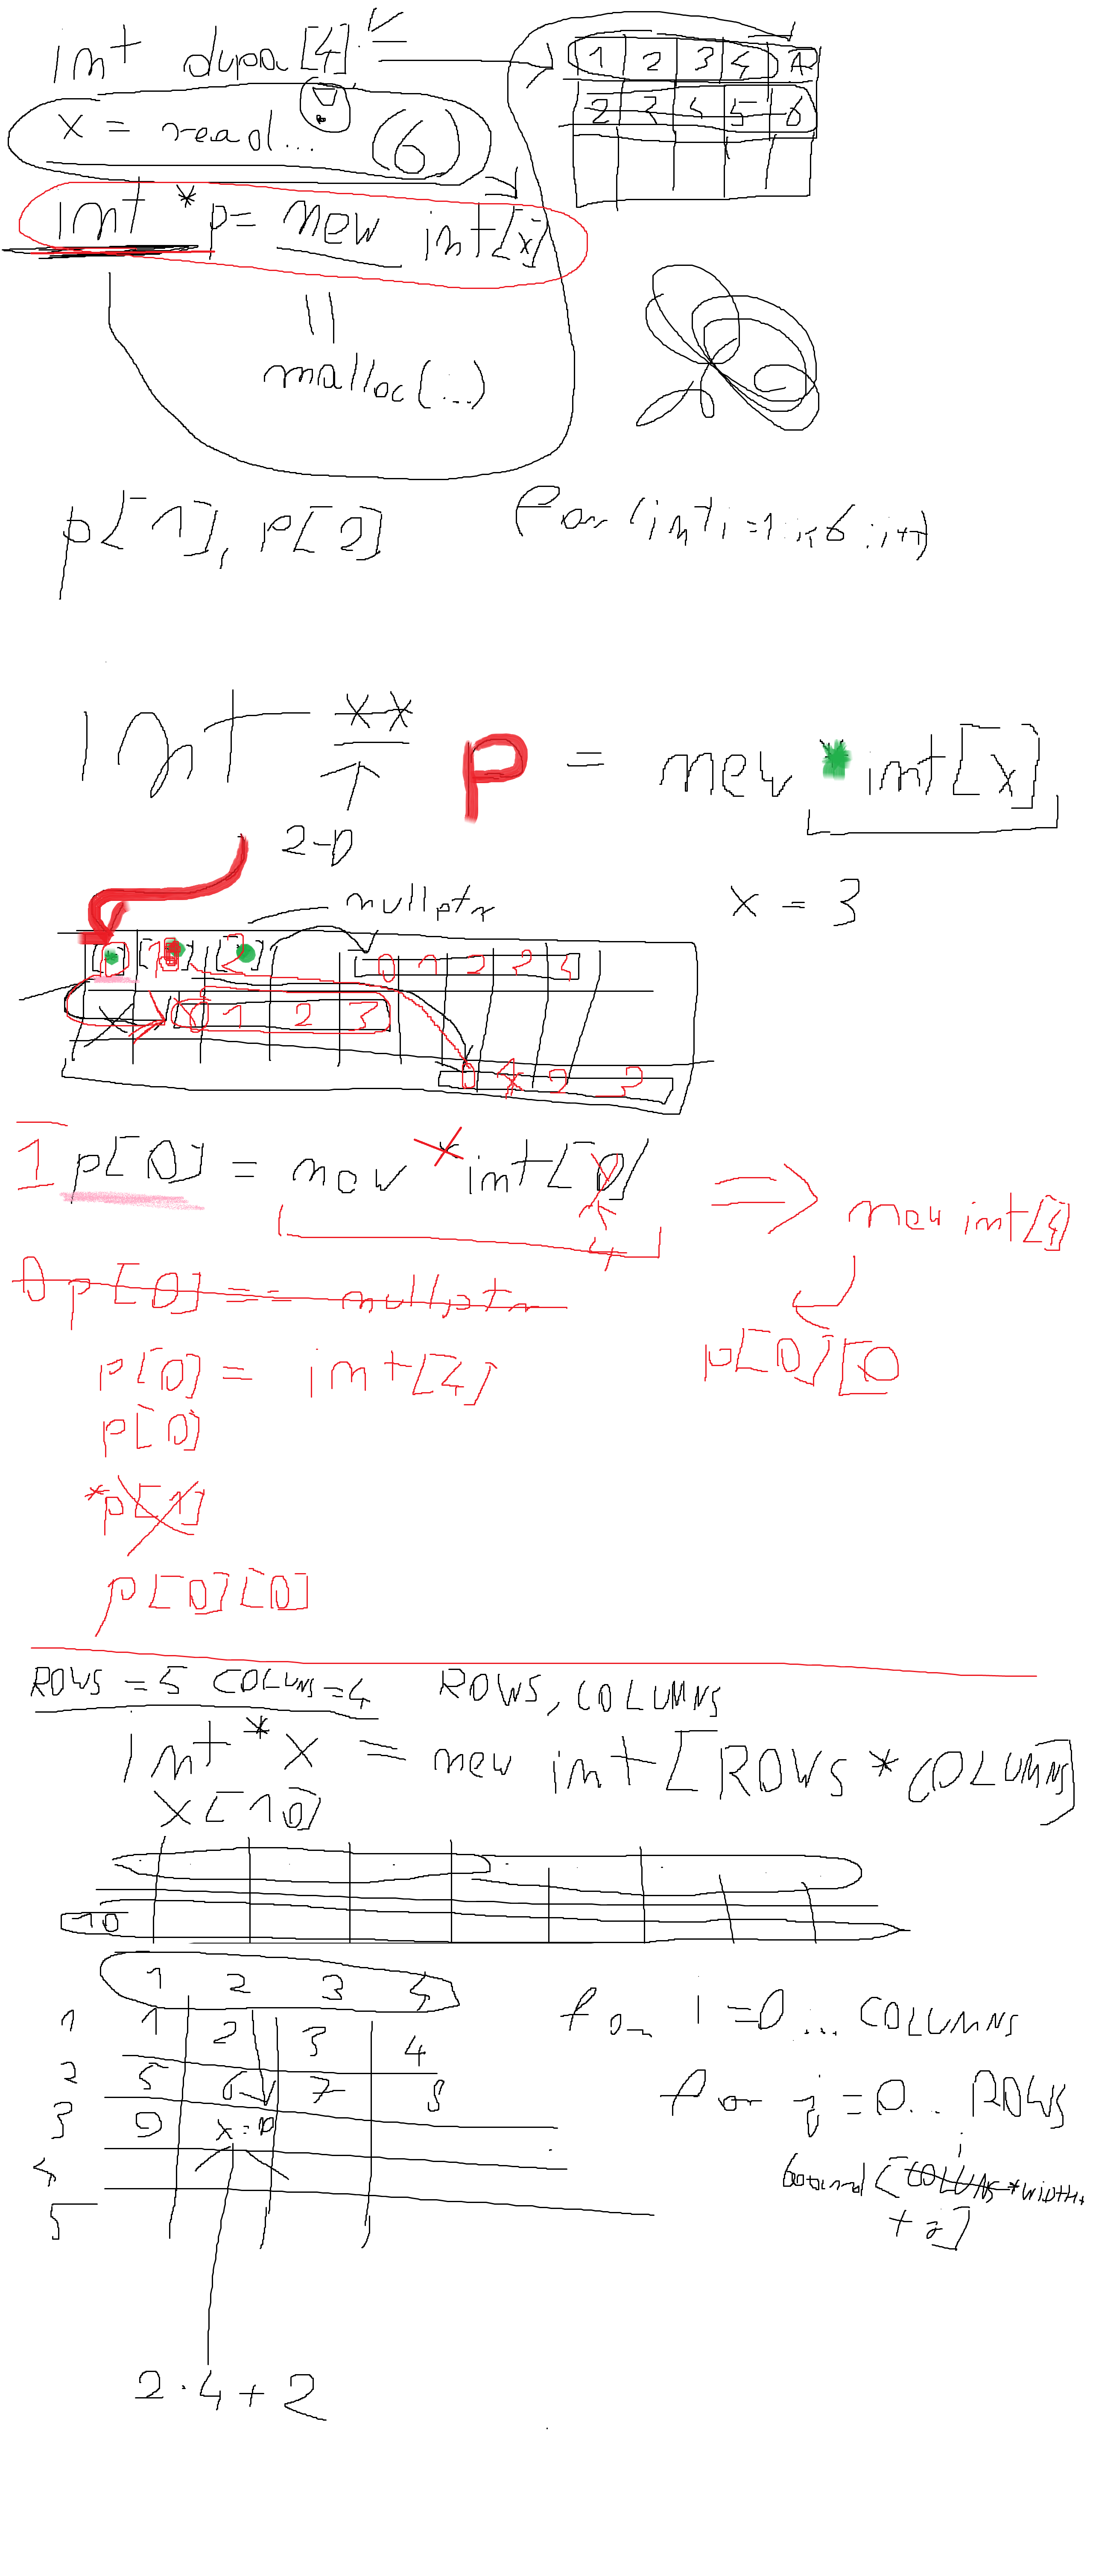 int dupa[4];
1 2 3 4 A
x = read... (6)
2 3 4 5 6
int *p = new int[x]
||
malloc(...)
p[1], p[2]
for (int i=1; i<6; i++)
int ** p = new *int[x]
2-D
x = 3
nullptr
[0] [1] [2]
0 1 2 3 4
0 1 2 3
0 1 2 3
1 p[0] = new *int[0]
4
=> new int[4]
0 p[0] == nullptr
p[0] = int[4]
p[0][0
p[0]
*p[1]
p[0][0]
ROWS = 5 COLUNS=4 ROWS, COLUMNS
int *x = new int[ROWS * COLUMNS]
x[10]
10
1 2 3 4
1 1 2 3 4
2 5 6 7 8
3 9 x=10
4
5
for i=0... COLUMNS
for j=0... ROWS
i
board[COLUNS *width
+ j]
2·4+2